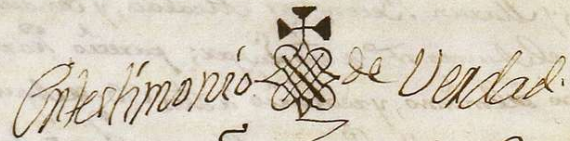 Entestimonio de Verdad.